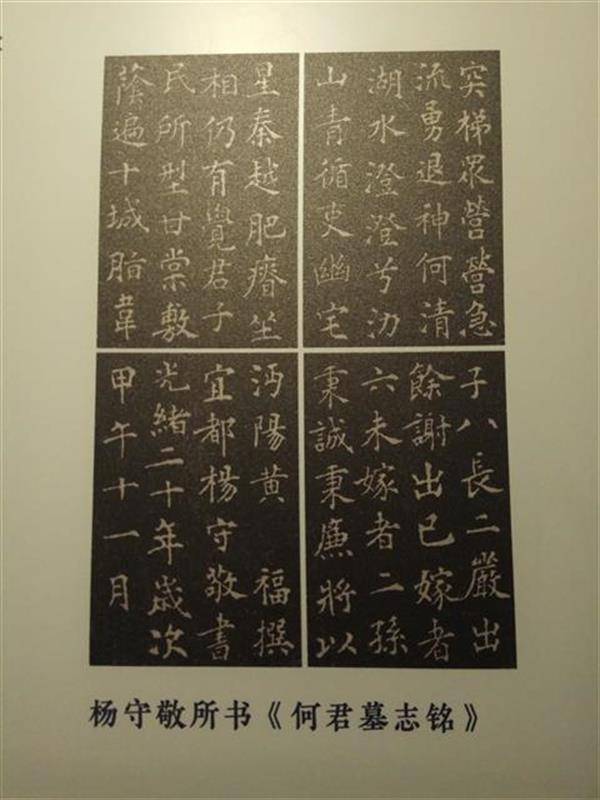 突梯眾營營急
流勇退神何清
湖水澄澄兮
山青循吏幽宅
星秦越肥瘠坐
相仍有覺君子
民所型甘棠敷
蔭遍十城脂韋
子八長二嚴出
餘謝出已嫁者
六未嫁者二孫
秉誠秉廉將以
沔陽黄 福撰
宜都楊守敬書
光緒二十年歲次
甲午十一月
杨守敬所书《何君墓志铭》